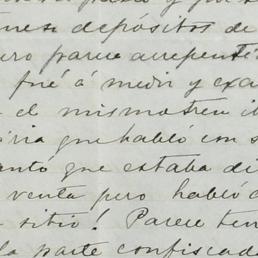 depósitos de
parece arrepenti
fué á medir y exa
el mismo tren i
que habló con s
antó que estaba di
venta pero habló
sitio! Parece ten
la parte confiscad